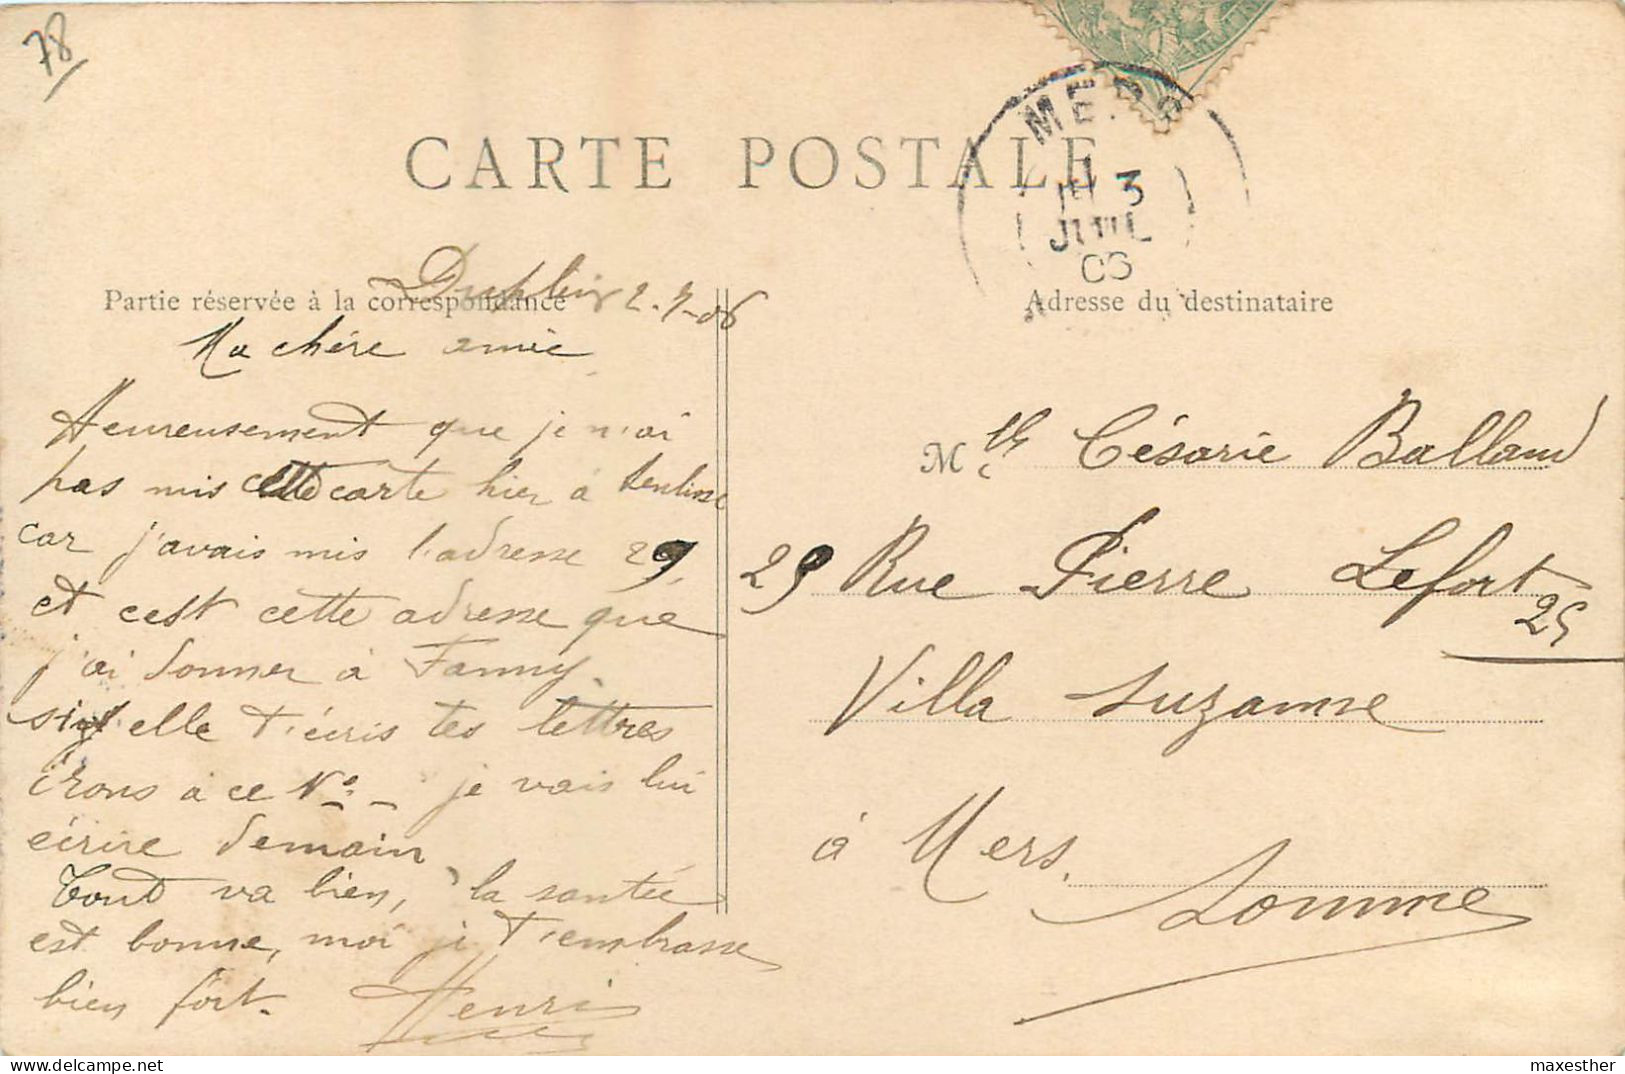 78
CARTE POSTALE
MERS
3
JUIL
06
Partie réservée à la correspondance
Adresse du destinataire
2-7-06
Ma chére amie
Heureusement que je n'ai
pas mis cette carte hier à
car j'avais mis l'adresse 29,
et cest cette adresse que
j'ai donner à Fanny.
si elle t'écris tes lettres
irons à ce No_ je vais lui
écrire demain
tout va bien, la santée
est bonne, moi je t'embrasse
bien fort. Henri
Mlle Césarie Balland
29 Rue Pierre Lefort
25
Villa Suzanne
à Mers.
Somme
maxesther